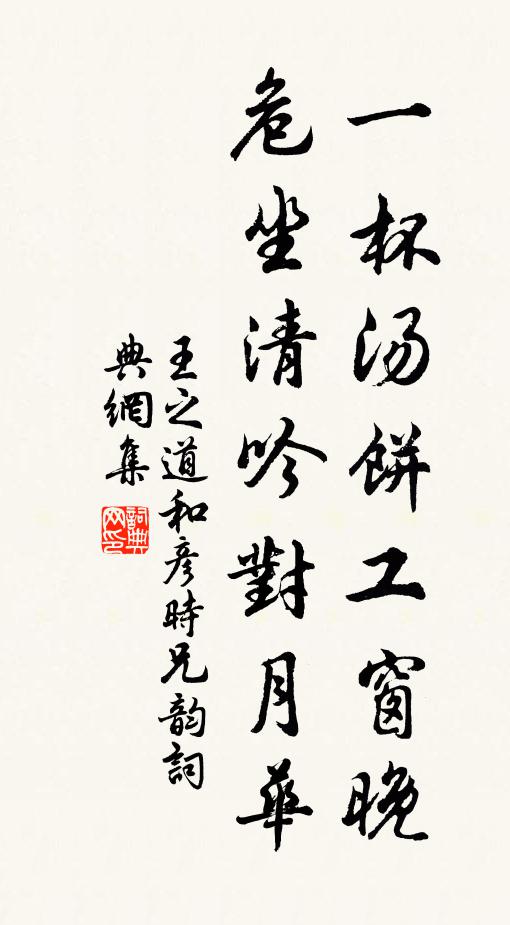 一杯汤餅工窗晚
危坐清吟對月華
王之道和彦時兄韵詞
典網集
詞典網印